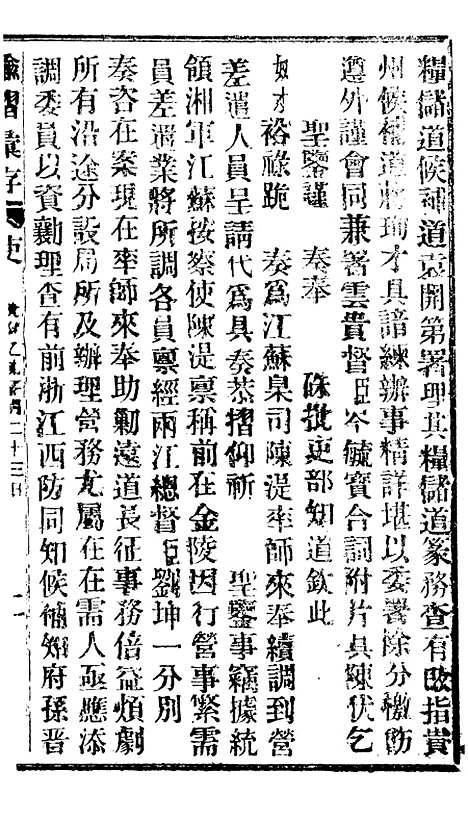 糧儲道候補道袁開第署理其糧儲道篆務查有改指貴
州候補道蔣珣才具諳練辦事精詳堪以委署除分檄飭
遵外謹會同兼署雲貴督臣岑毓寶合詞附片具陳伏乞
聖鑒謹 奏奉 硃批吏部知道欽此
奴才裕祿跪 奏爲江蘇臬司陳湜率師來奉續調到營
差遣人員呈請代爲具奏恭摺仰祈 聖鑒事竊據統
領湘軍江蘇按察使陳湜稟稱前在金陵因行營事繁需
員差遣業將所調各員稟經兩江總督臣劉坤一分別
奏咨在案現在率師來奉助剿遠道長征事務倍益煩劇
所有沿途分設局所及辦理營務尤屬在在需人亟應添
調委員以資勷理查有前浙江西防同知候補知府孫晋
諭摺彙存 吏 二十三日 二